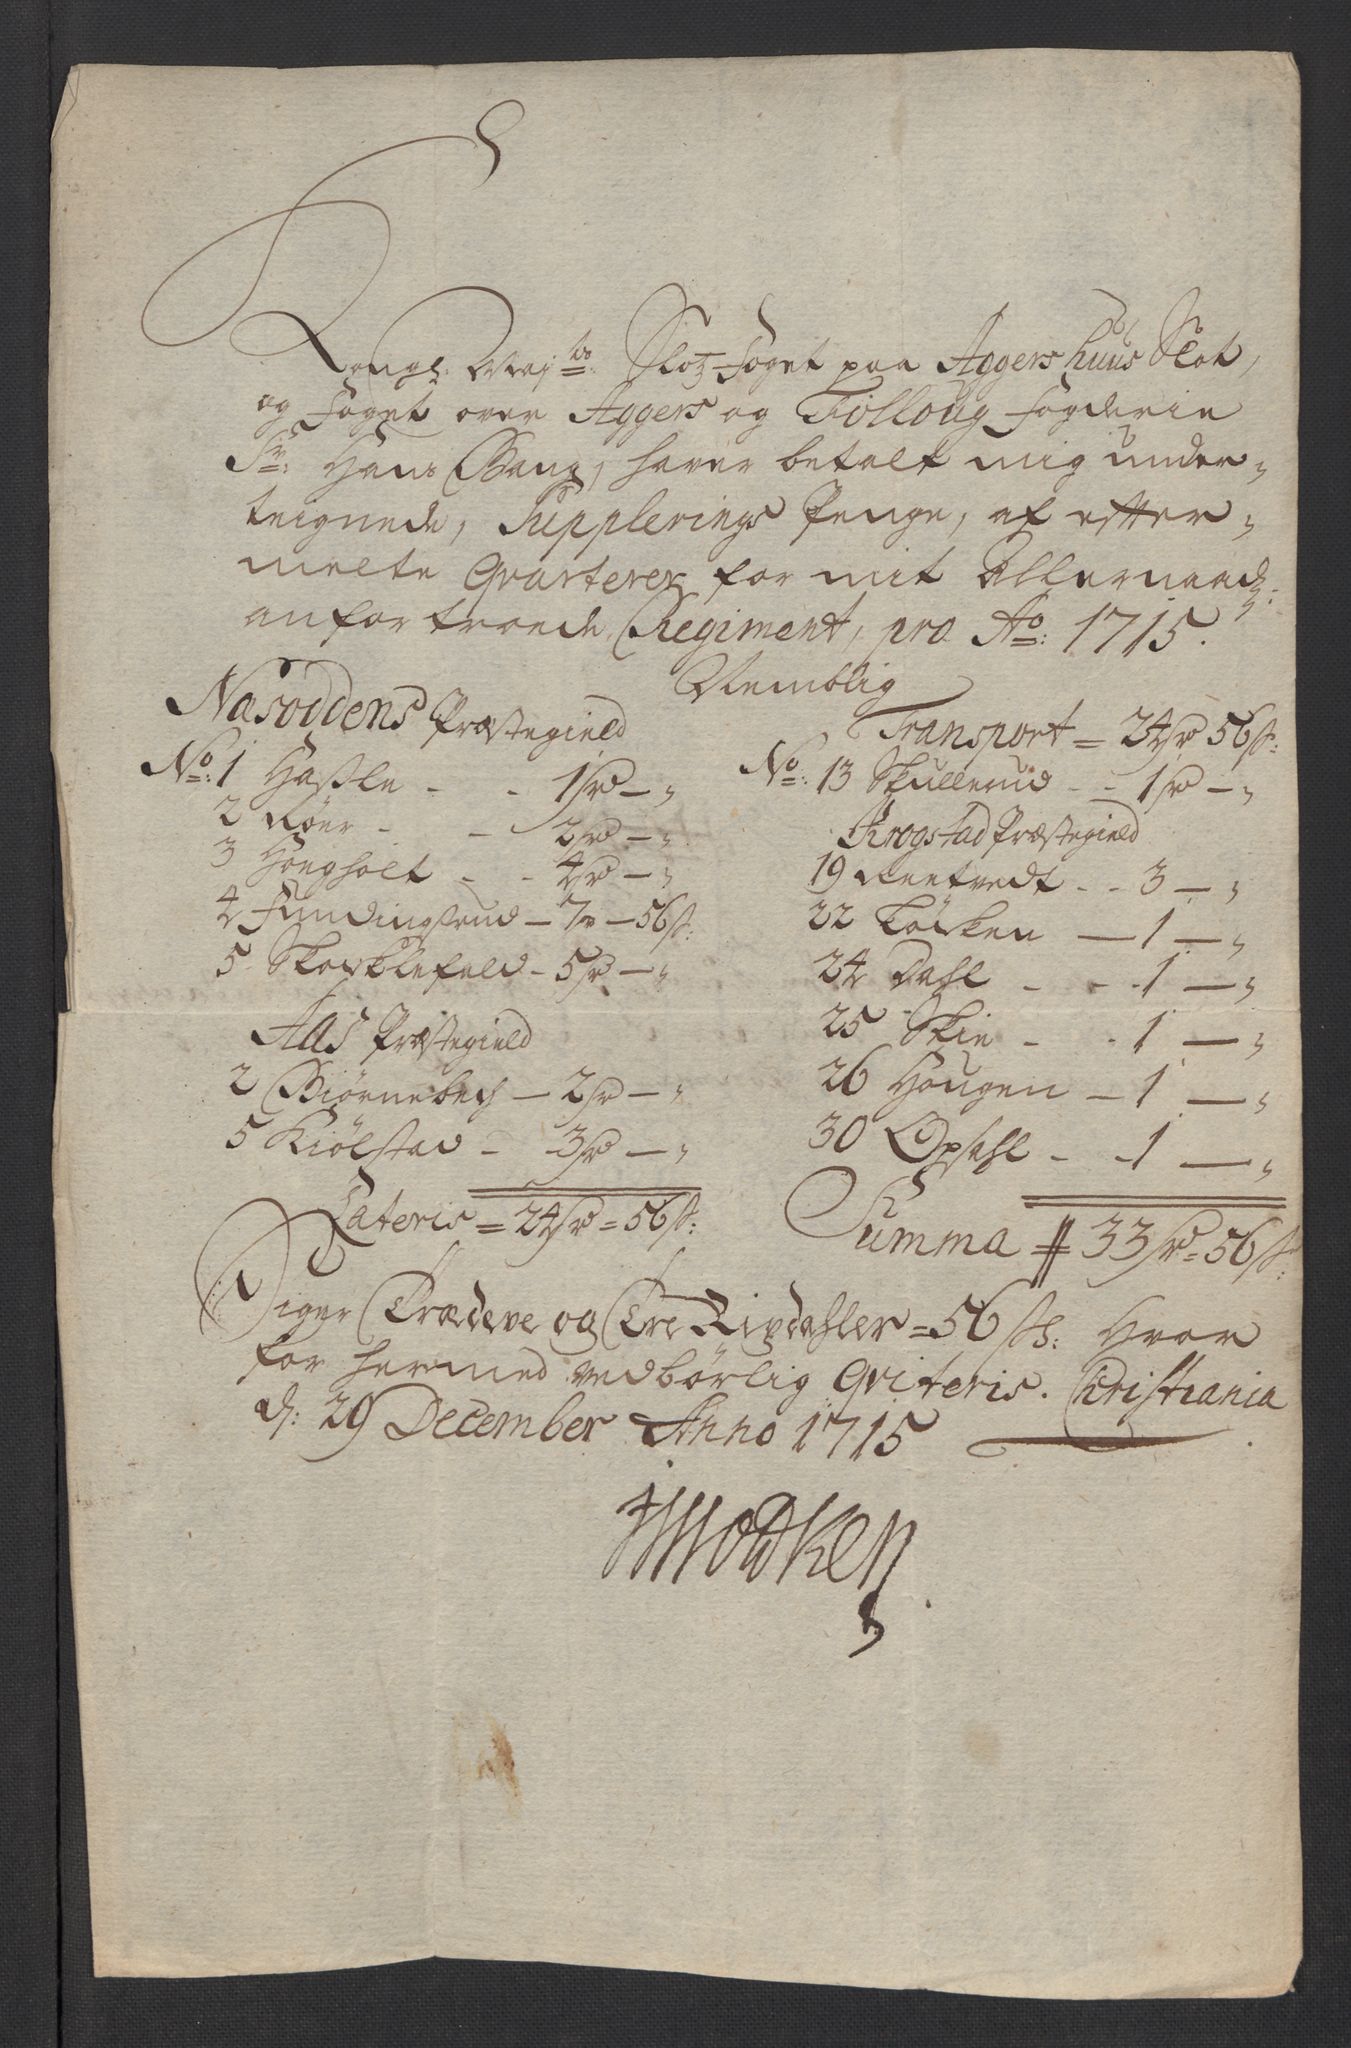 Kongl: May:ts Slotz Foget paa Aggershuus Slot,
og Foget over Aggers og Folloug Fogderie
Sr: Hans Bang, haver betalt mig under-
teignede, Supplerings Penge, af efter-
melte Qvarterer for mit Allernaad:
anfortroede Regiment, pro Ao: 1715.
Nemblig
Nasoddens Præstegield
No: 1 Hasle - - 1 rd - "
2 Röer - - 2 rd - "
3 Hougholt - - 4 rd - "
4 Fundingsrud - 7 r - 56 s:
5 Skochlefald - 5 rd - "
Aas Præstegield
2 Biörnebech - 2 rd - "
5 Kiölstad - - 3 rd - "
Lateris = 24 rd = 56 s:
Transport = 24 rd 56 s:
No: 13 Skullerud - - 1 rd - "
Krogstad Præstegield
19 Reetvedt - - 3 - "
22 Töcken - 1 - "
24 Dahl - - - 1 - "
25 Skie - - 1 - "
26 Hougen - 1 - "
30 Opsahl - - 1 - "
Summa # 33 rd = 56 s:
Siger Trædeve og Tre Rixdahler = 56 sh: Hvor
for hermed vedbörlig Qviteris. Christiania
d: 29 December Anno 1715